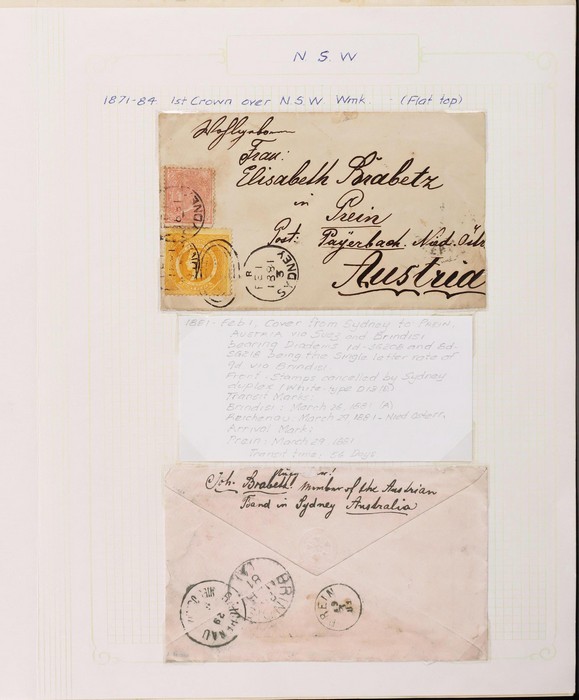 N. S. W
1871-84 1st Crown over N.S.W Wmk. (Flat top)
Frau:
Elisabeth Brabetz
in
Prein
Post: Payerbach. Nied. Östr
Austria
SYDNEY
FE 1
1881
1881. Feb 1, Cover from Sydney to Prein,
Austria via Suez and Brindisi
bearing Diadems 1d. and 8d.
being the Single letter rate of
9d via Brindisi
Front: Stamps cancelled by Sydney
duplex
Transit Mark:
Brindisi: March 26, 1881 (A)
Reichenau: March 29, 1881
Arrival Mark:
Prein: March 29, 1881
Transit time: 56 Days
Joh. Brabetz Member of the Austrian
Band in Sydney Australia
BRIN
81
29
PREIN